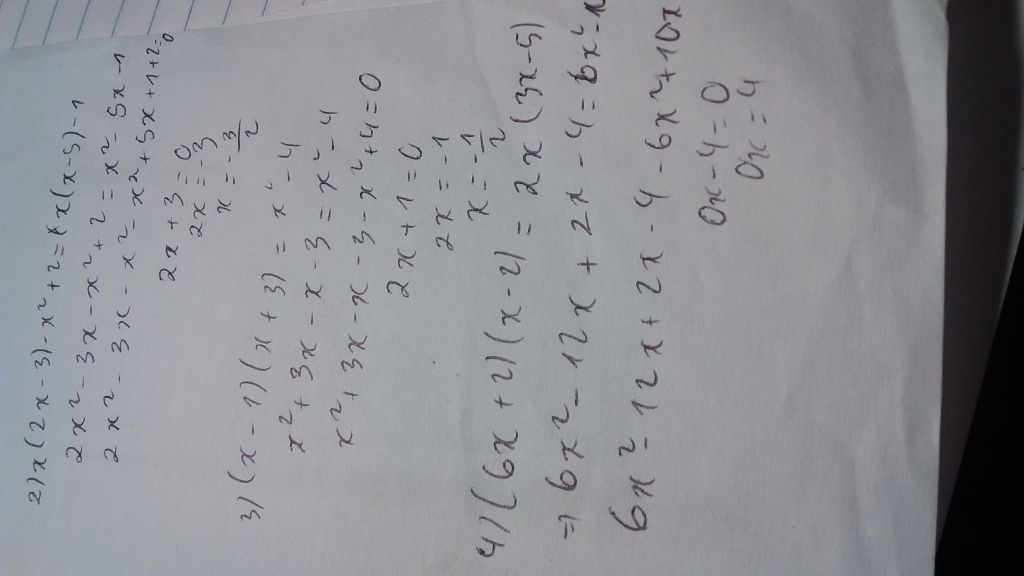 2) x(2x-3)-x²+2=x(x-5)-1
2x²-3x-x²+2=x²-5x-1
2x²-3x-x²-x²+5x+1+2=0
2x+3=0
2x=-3
x=-3/2
3) (x-1)(x+3)=x²-4
x²+3x-x-3=x²-4
x²+3x-x-3-x²+4=0
2x+1=0
2x=-1
x=-1/2
4) (6x+2)(x-2)=2x(3x-5)
=> 6x²-12x+2x-4=6x²-1
6x²-12x+2x-4-6x²+10x
0x-4=0
0x=4